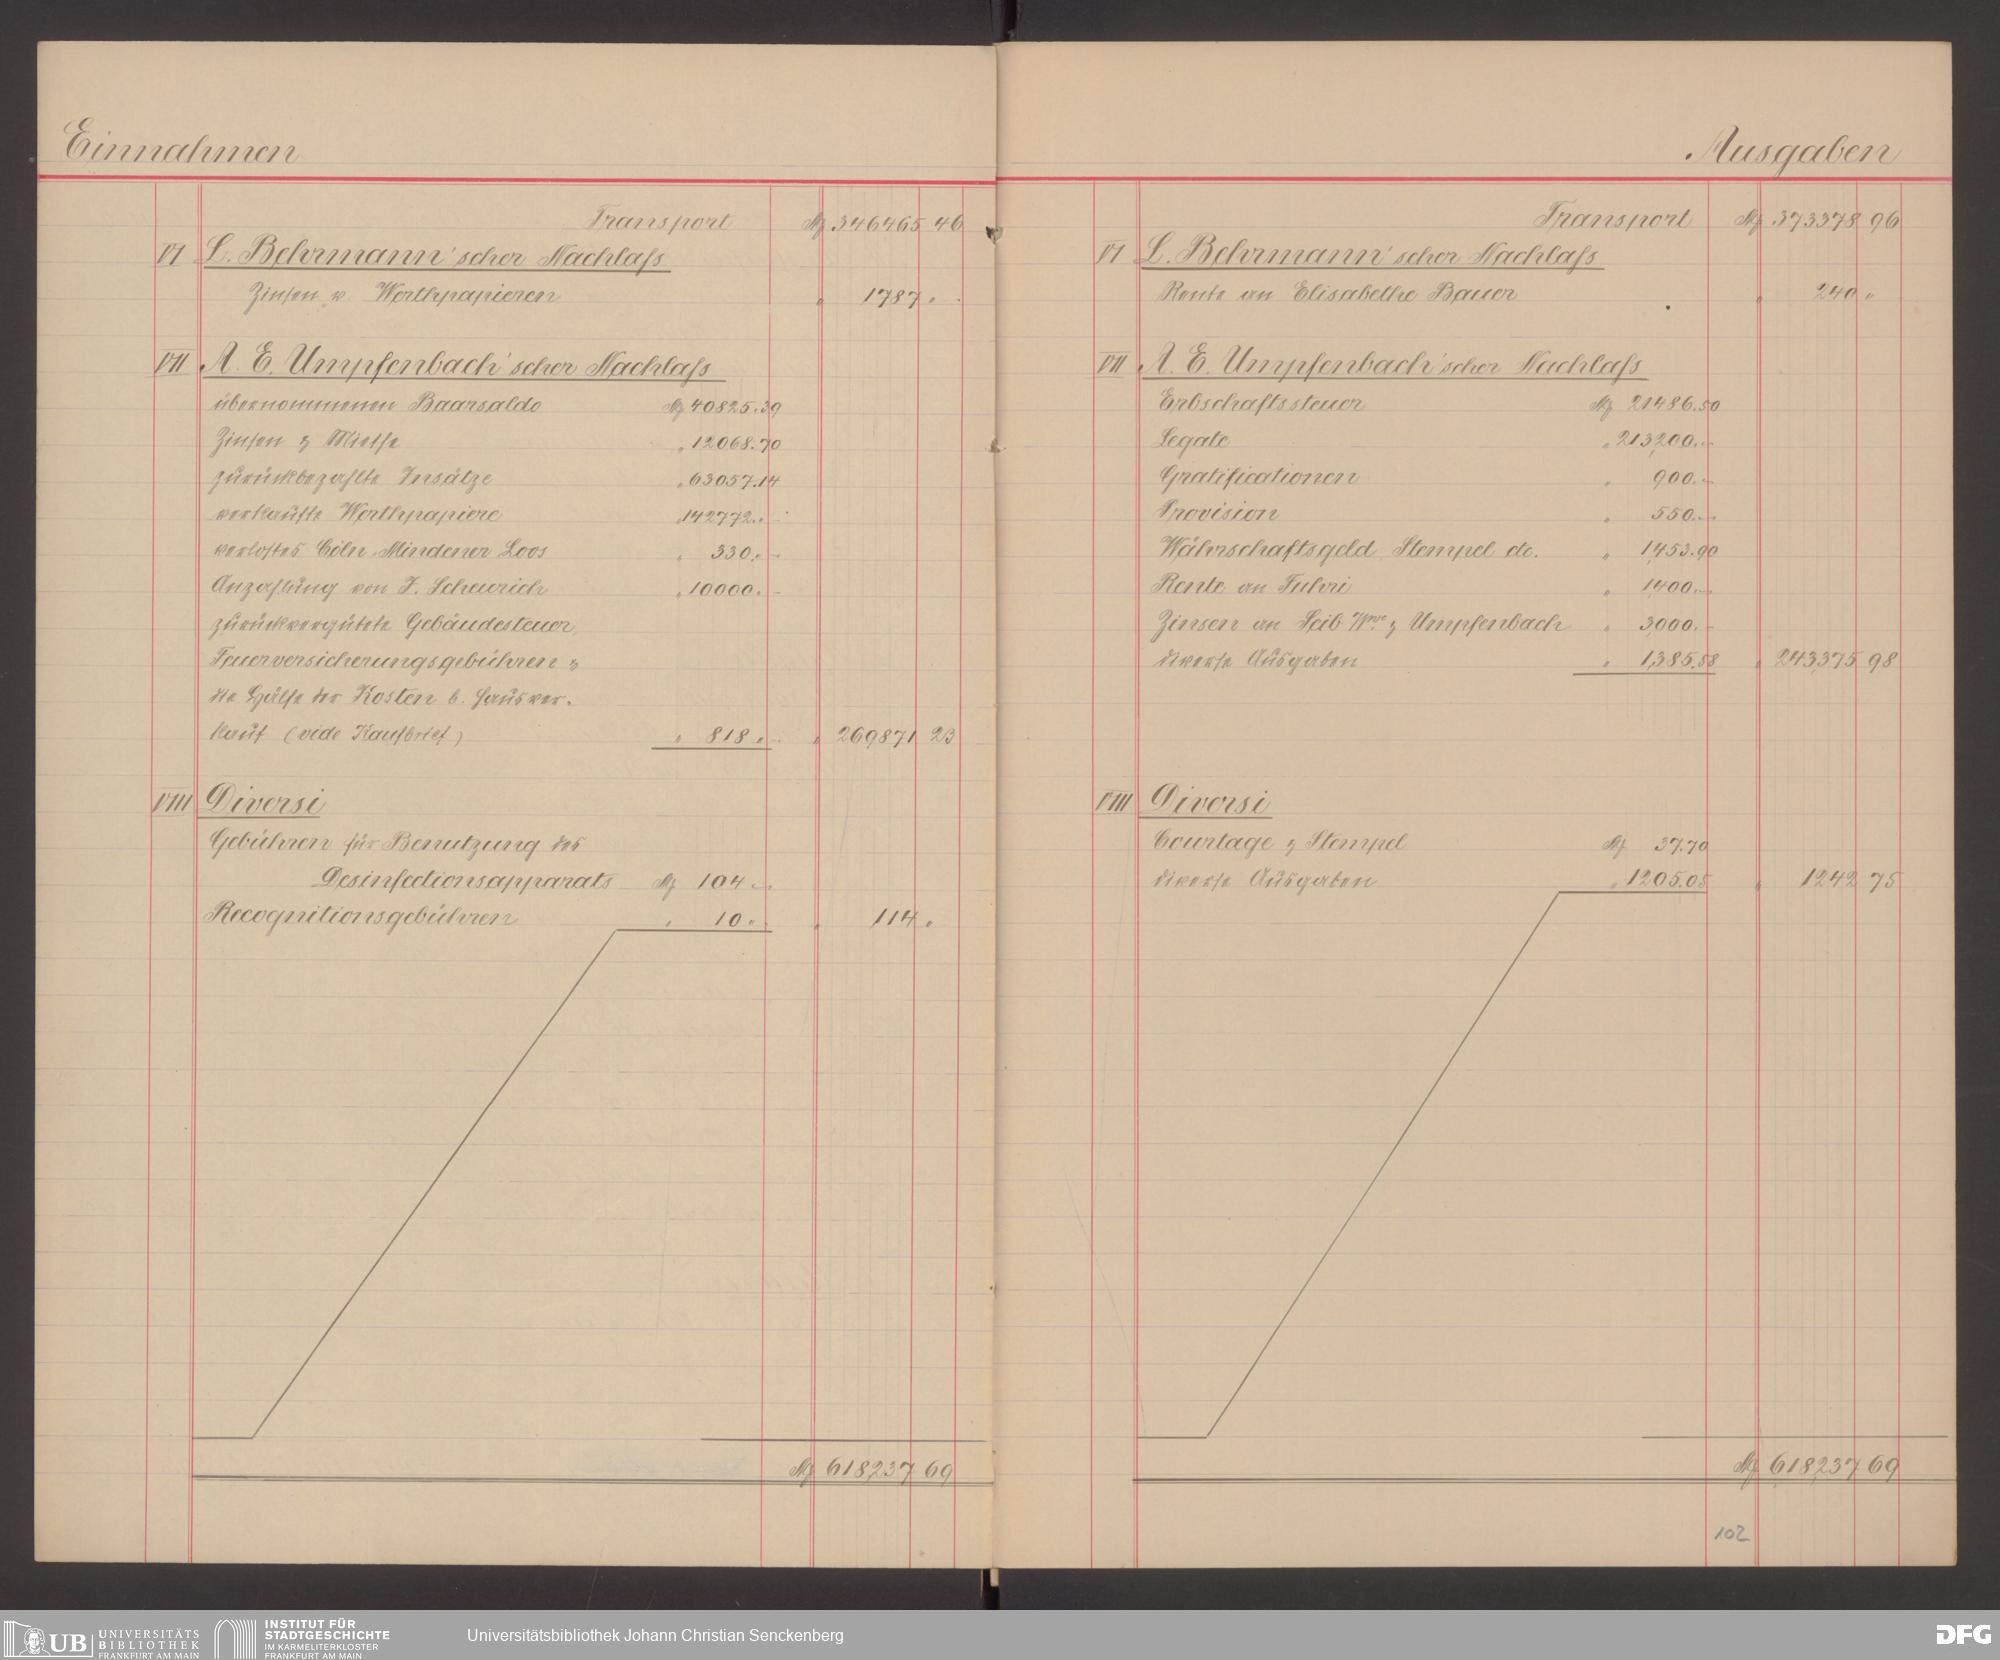 Einnahmen
Transport M 346465 46
VI L. Behrmann'scher Nachlaſs
Zinsen v. Werthpapieren " 1787 "
VII A. E. Umpfenbach'scher Nachlaſs
übernommenen Baarsaldo M 40825.39
Zinsen & Miethe " 12068.70
zurückbezahlte Insätze " 63057.14
verkaufte Werthpapiere " 142772."
verlostes Cöln-Mindener Loos " 330."
Anzahlung von J. Scheurich " 10000.
zurückvergütete Gebäudesteuer,
Feuerversicherungsgebühren &
die Hälfe der Kosten b. Hausver-
kauf (vide Kaufbrief) " 818 " " 269871 23
VIII Diversi
Gebühren für Benutzung des
Desinfectionsapparats M 104.
Recognitionsgebühren " 10 " " 114 "
M 618237 69
Ausgaben
Transport M 373378 96
VI L. Behrmann'scher Nachlaſs
Rente an Elisabethe Bauer " 240 "
VII A. E. Umpfenbach'scher Nachlaſs
Erbschaftssteuer M 21486.50
Legate " 213200.-
Gratificationen " 900.-
Provision " 550.-
Währschaftsgeld, Stempel etc. " 1453.90
Rente an Fuhri " 1400.-
Zinsen an Seib Wwe & Umpfenbach " 3000.-
diverse Ausgaben " 1385.58 " 243375 98
VIII Diversi
Courtage & Stempel M 37.70
diverse Ausgaben " 1205.05 " 1242 75
M 618237 69
102
UB UNIVERSITÄTS
BIBLIOTHEK
FRANKFURT AM MAIN
INSTITUT FÜR
STADTGESCHICHTE
IM KARMELITERKLOSTER
FRANKFURT AM MAIN
Universitätsbibliothek Johann Christian Senckenberg
DFG